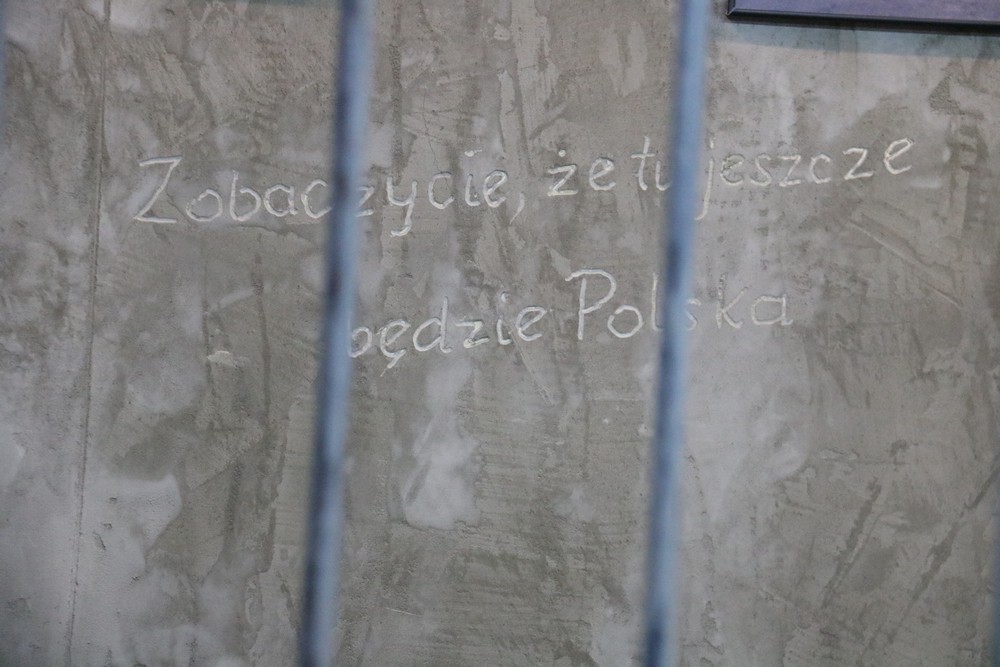 Zobaczycie, że tu jeszcze
będzie Polska